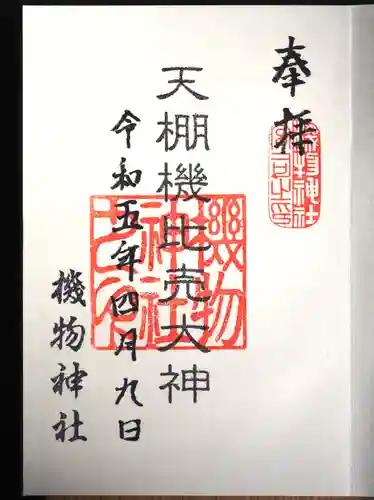 奉拝
天棚機比売大神
令和五年四月九日
機物神社
機物
神社